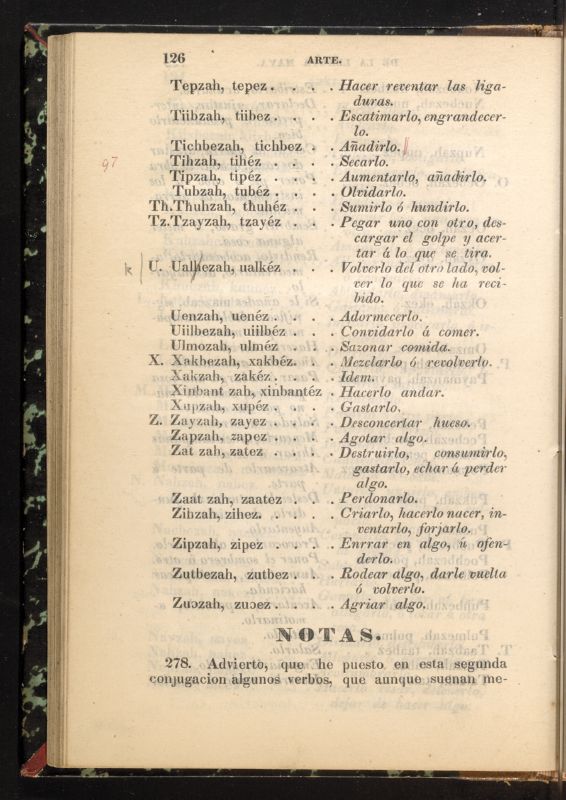 126 ARTE.
Tepzah, tepez. . . . Hacer reventar las liga-
duras.
Tiibzah, tiibez. . . . Escatimarlo, engrandecer-
lo.
Tichbezah, tichbez . . Añadirlo.
97
Tihzah, tihéz . . . . Secarlo.
Tipzah, tipéz . . . . Aumentarlo, añadirlo.
Tubzah, tubéz. . . . Olvidarlo.
Th. Thuhzah, thuhéz . . . Sumirlo ó hundirlo.
Tz. Tzayzah, tzayéz . . . Pegar uno con otro, des-
cargar el golpe y acer-
tar á lo que se tira.
k U. Ualhezah, ualkéz . . Volverlo del otro lado, vol-
ver lo que se ha reci-
bido.
Uenzah, uenéz. . . . Adormecerlo.
Uiilbezah, uiilbéz . . Convidarlo á comer.
Ulmozah, ulméz . . . Sazonar comida.
X. Xakbezah, xakbéz. . . Mezclarlo ó revolverlo.
Xakzah, zakéz. . . . Idem.
Xinbant zah, xinbantéz . Hacerlo andar.
Xupzah, xupéz . . . Gastarlo.
Z. Zayzah, zayez . . . Desconcertar hueso.
Zapzah, zapez . . . . Agotar algo.
Zat zah, zatez . . . Destruirlo, consumirlo,
gastarlo, echar á perder
algo.
Zaat zah, zaatez . . Perdonarlo.
Zihzah, zihez. . . . . Criarlo, hacerlo nacer, in-
ventarlo, forjarlo.
Zipzah, zipez . . . . Enrrar en algo, ú ofen-
derlo.
Zutbezah, zutbez . . Rodear algo, darle vuelta
ó volverlo.
Zuɔzah, zuɔez. . . . Agriar algo.
NOTAS.
278. Advierto, que he puesto en esta segunda
conjugacion algunos verbos, que aunque suenan me-